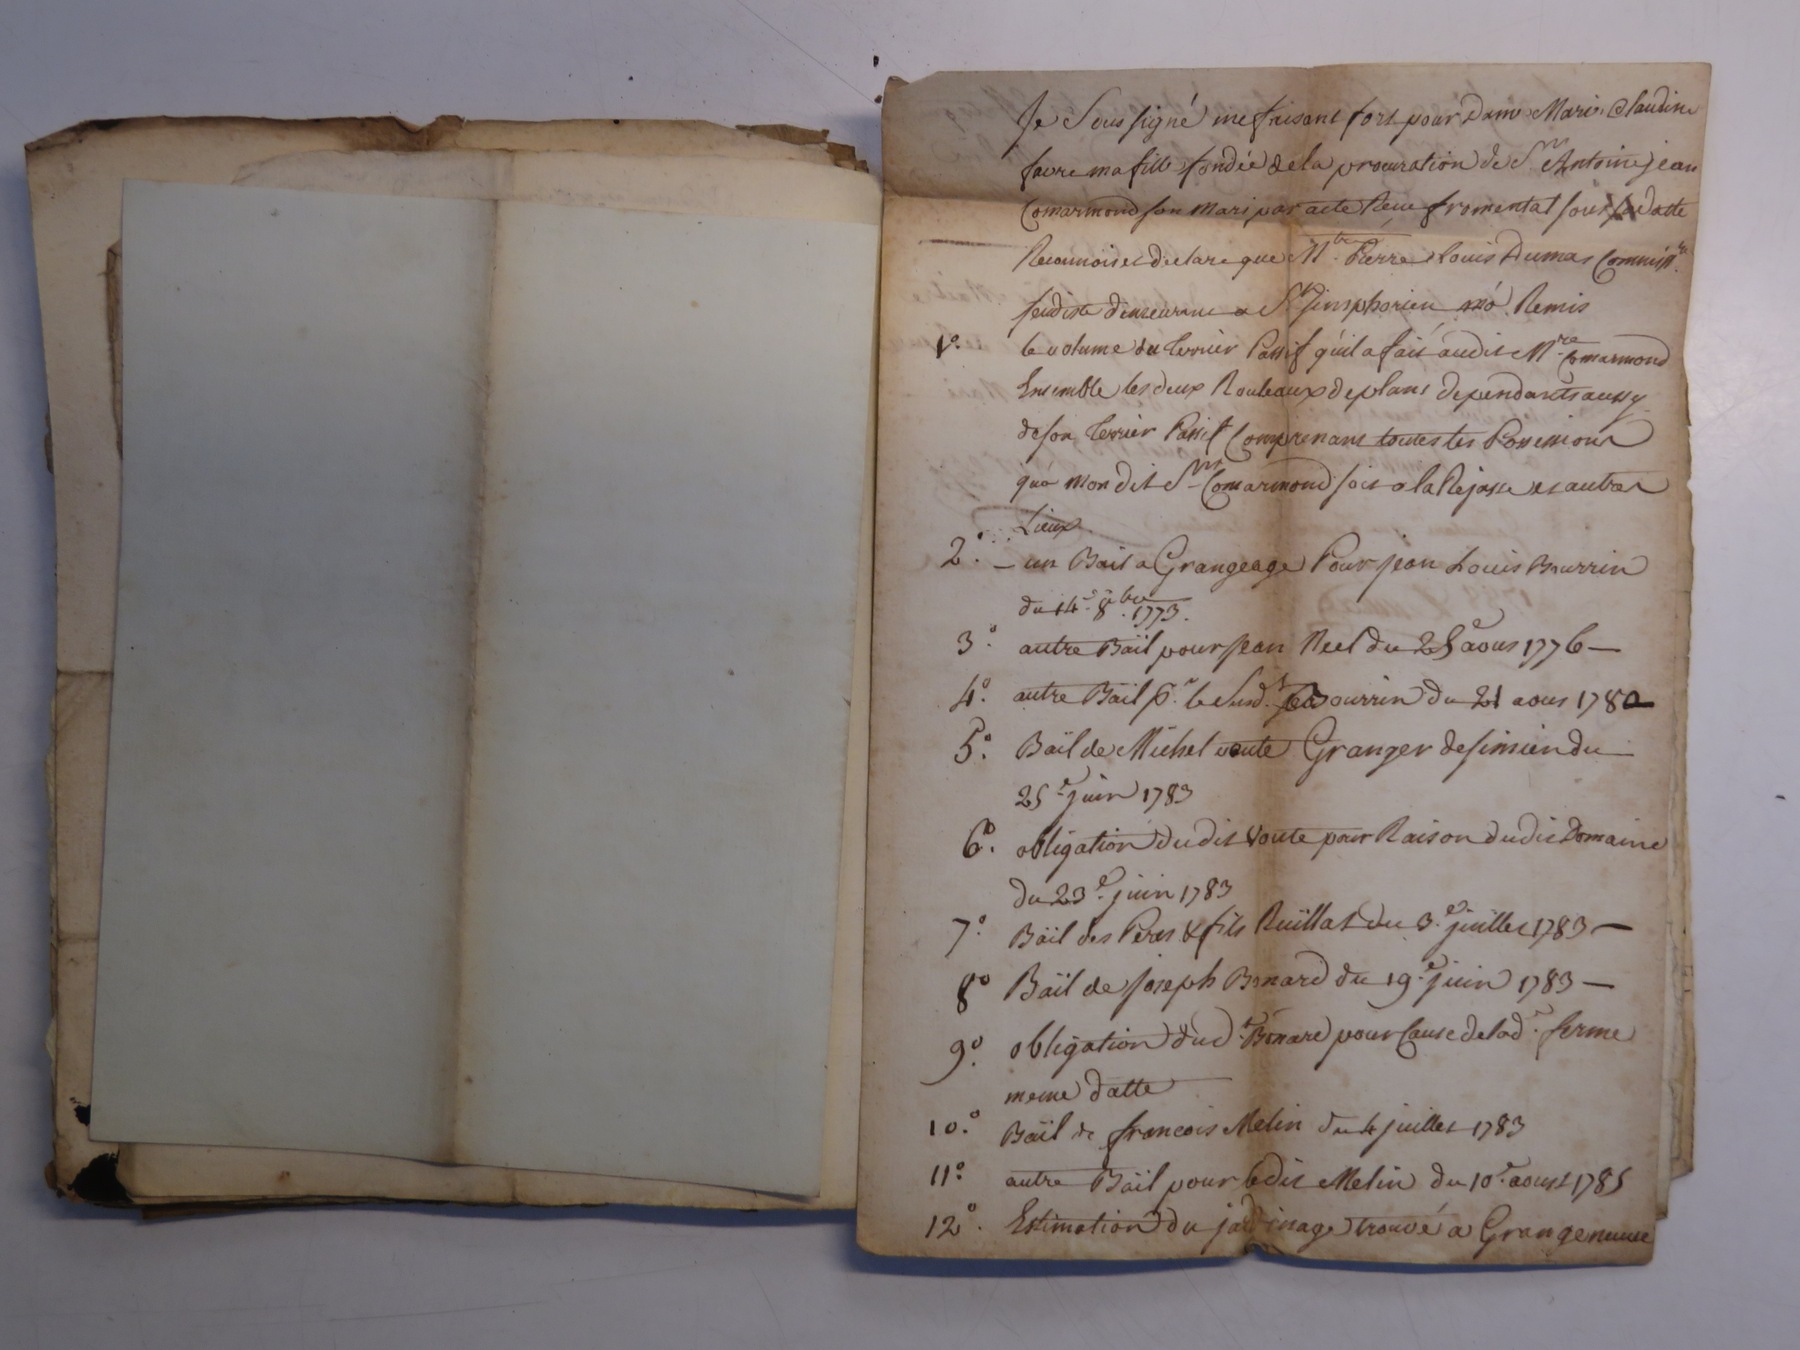 Je Sous signé me faisant fort pour Dame Marie Claudine
favre ma fille fondée de la procuration de Sr. Antoine jean
Comarmond son Mari par acte Reçu fromental sous sa datte
Reconnois et declare que Mtre. Pierre Louis Dumas Commissre.
feudiste demeurant a St. Simphorien m'a Remis
1°. le volume du Terrier Passif qu'il a fait audit Mre. Comarmond
Ensemble les deux Rouleaux de plans dependants aussy
de son Terrier Passif Comprenant toutes les Possessions
qu'a mon dit Sr. Comarmond soit a la Rajasse et autres
Lieux
2°. – un Bail a Grangeage Pour jean Louis Bourrin
du 14e. 8bre. 1773.
3°. autre Bail pour jean Reel du 25e aout 1776 —
4°. autre Bail pr. le susdt. Bourrin du 21 aout 1780
5°. Bail de Michel voute Granger de simien du
25e. juin 1783
6°. obligation du dit Voute pour Raison dudit Domaine
du 23e. juin 1783
7°. Bail des Peres & fils Ruillat du 3e. juillet 1783 —
8° Bail de joseph Bonard du 19e. juin 1783 —
9°. obligation dud. Bonard pour Cause de lade. ferme
meme datte
10°. Bail de francois Melin du 4 juillet 1783
11°. autre Bail pour ledit Melin du 10e. aoust 1785
12°. Estimation du jardinage trouvé a Grangeneuve